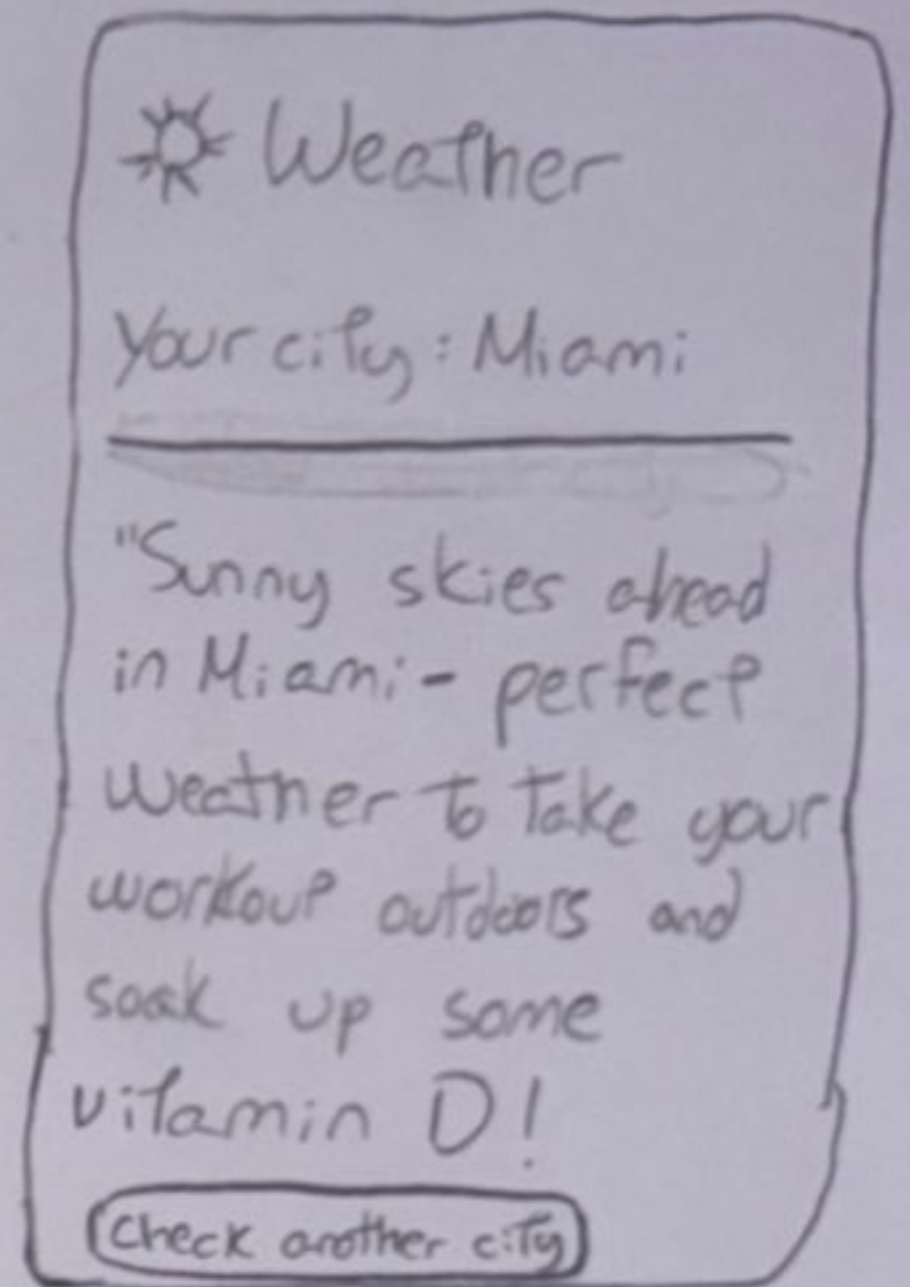 Weather
Your city: Miami
"Sunny skies ahead
in Miami - perfect
weather to take your
workout outdoors and
soak up some
vitamin D!
Check another city